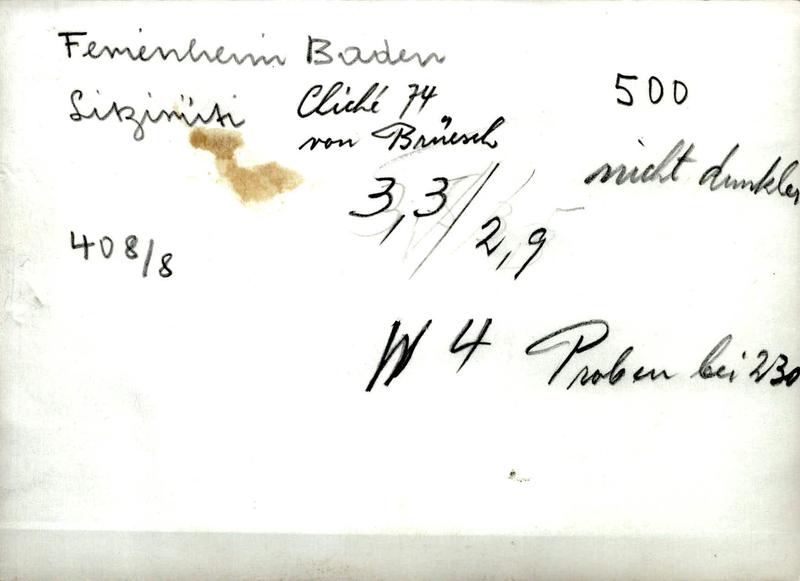 Ferienheim Baden
Litzirüti
Cliché 74
von Brüesch
500
nicht dunkler
3,3/2,9
408/8
W 4 Proben bei 230